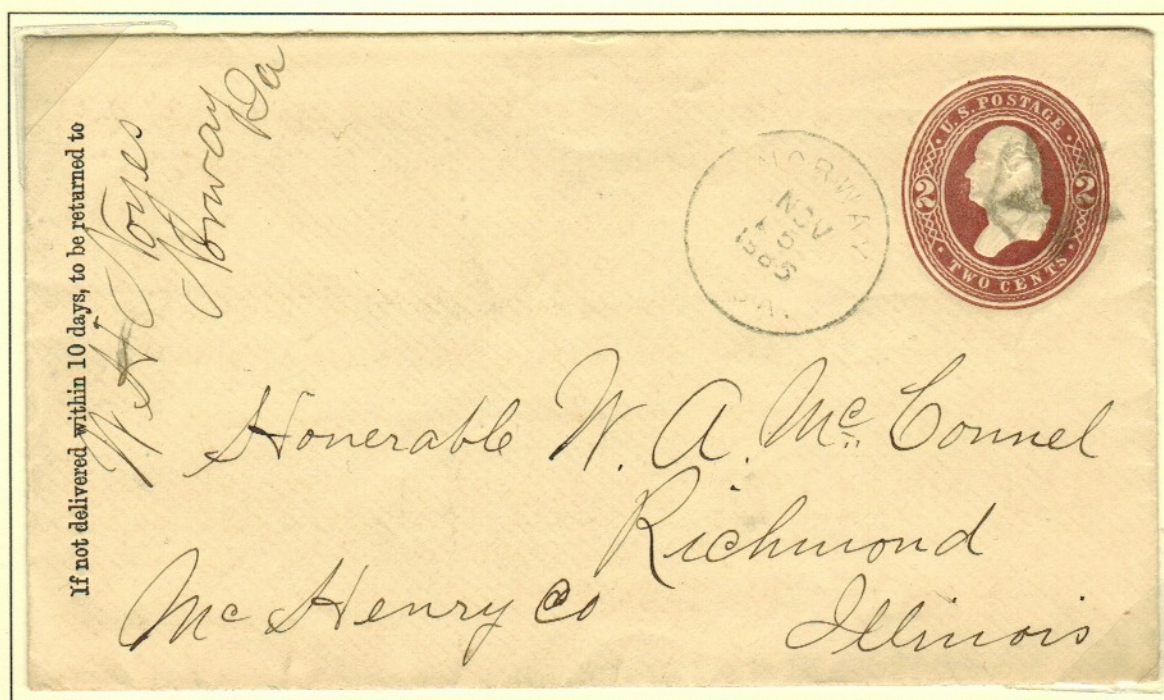 If not delivered within 10 days, to be returned to
W H Noyes
Norway Ia
NORWAY
NOV
5
1885
U.S. POSTAGE
2 2
TWO CENTS
Honerable W. A. Mc Connel
Richmond
Mc Henry Co
Illinois